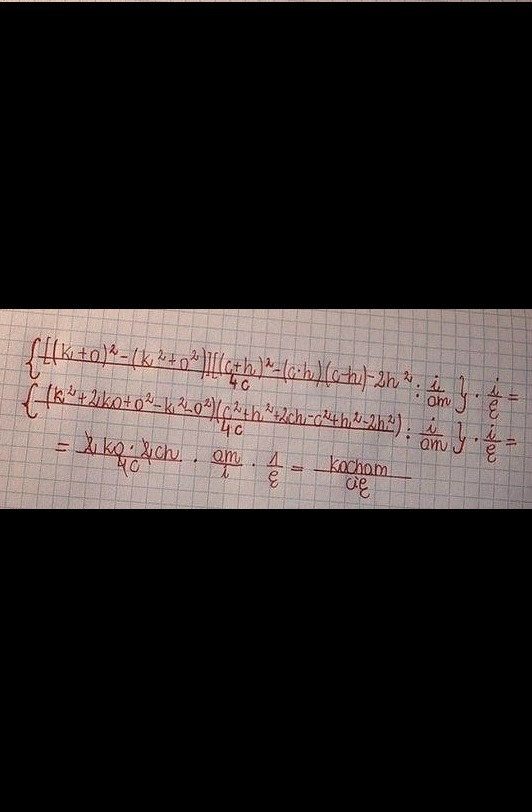 {[(k+o)²-(k²+o²)][(c+h)²-(c·h)(c-h)-2h² / 4c : i/am} · i/ę =
{(k²+2ko+o²-k²-o²)(c²+h²+2ch-c²+h²-2h²) / 4c : i/am} · i/ę =
= 2ko·2ch/4c · am/i · 1/ę = kocham/cię